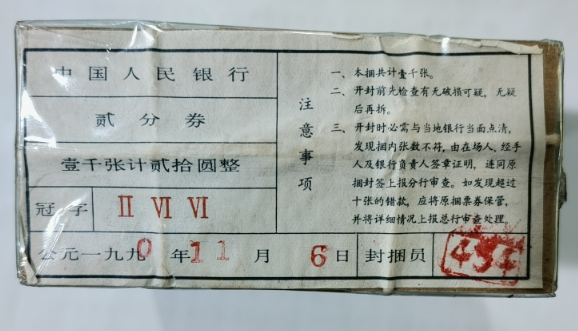 中国人民银行
贰分券
壹千张计贰拾圆整
冠字 II VI VI
公元一九九0年11月6日 封捆员
注意事项
一、本捆共计壹千张。
二、开封前先检查有无破损可疑，无疑
后再拆。
三、开封时必需与当地银行当面点清，
发现捆内张数不符，由在场人、经手
人及银行负责人签章证明，连同原
捆封签上报分行审查。如发现超过
十张的错款，应将原捆票券保管，
并将详细情况上报总行审查处理。